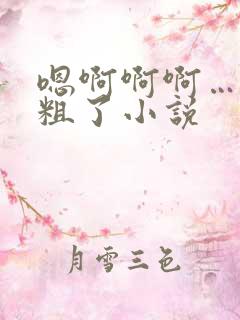 嗯啊啊啊…
粗了小说
月雪三色